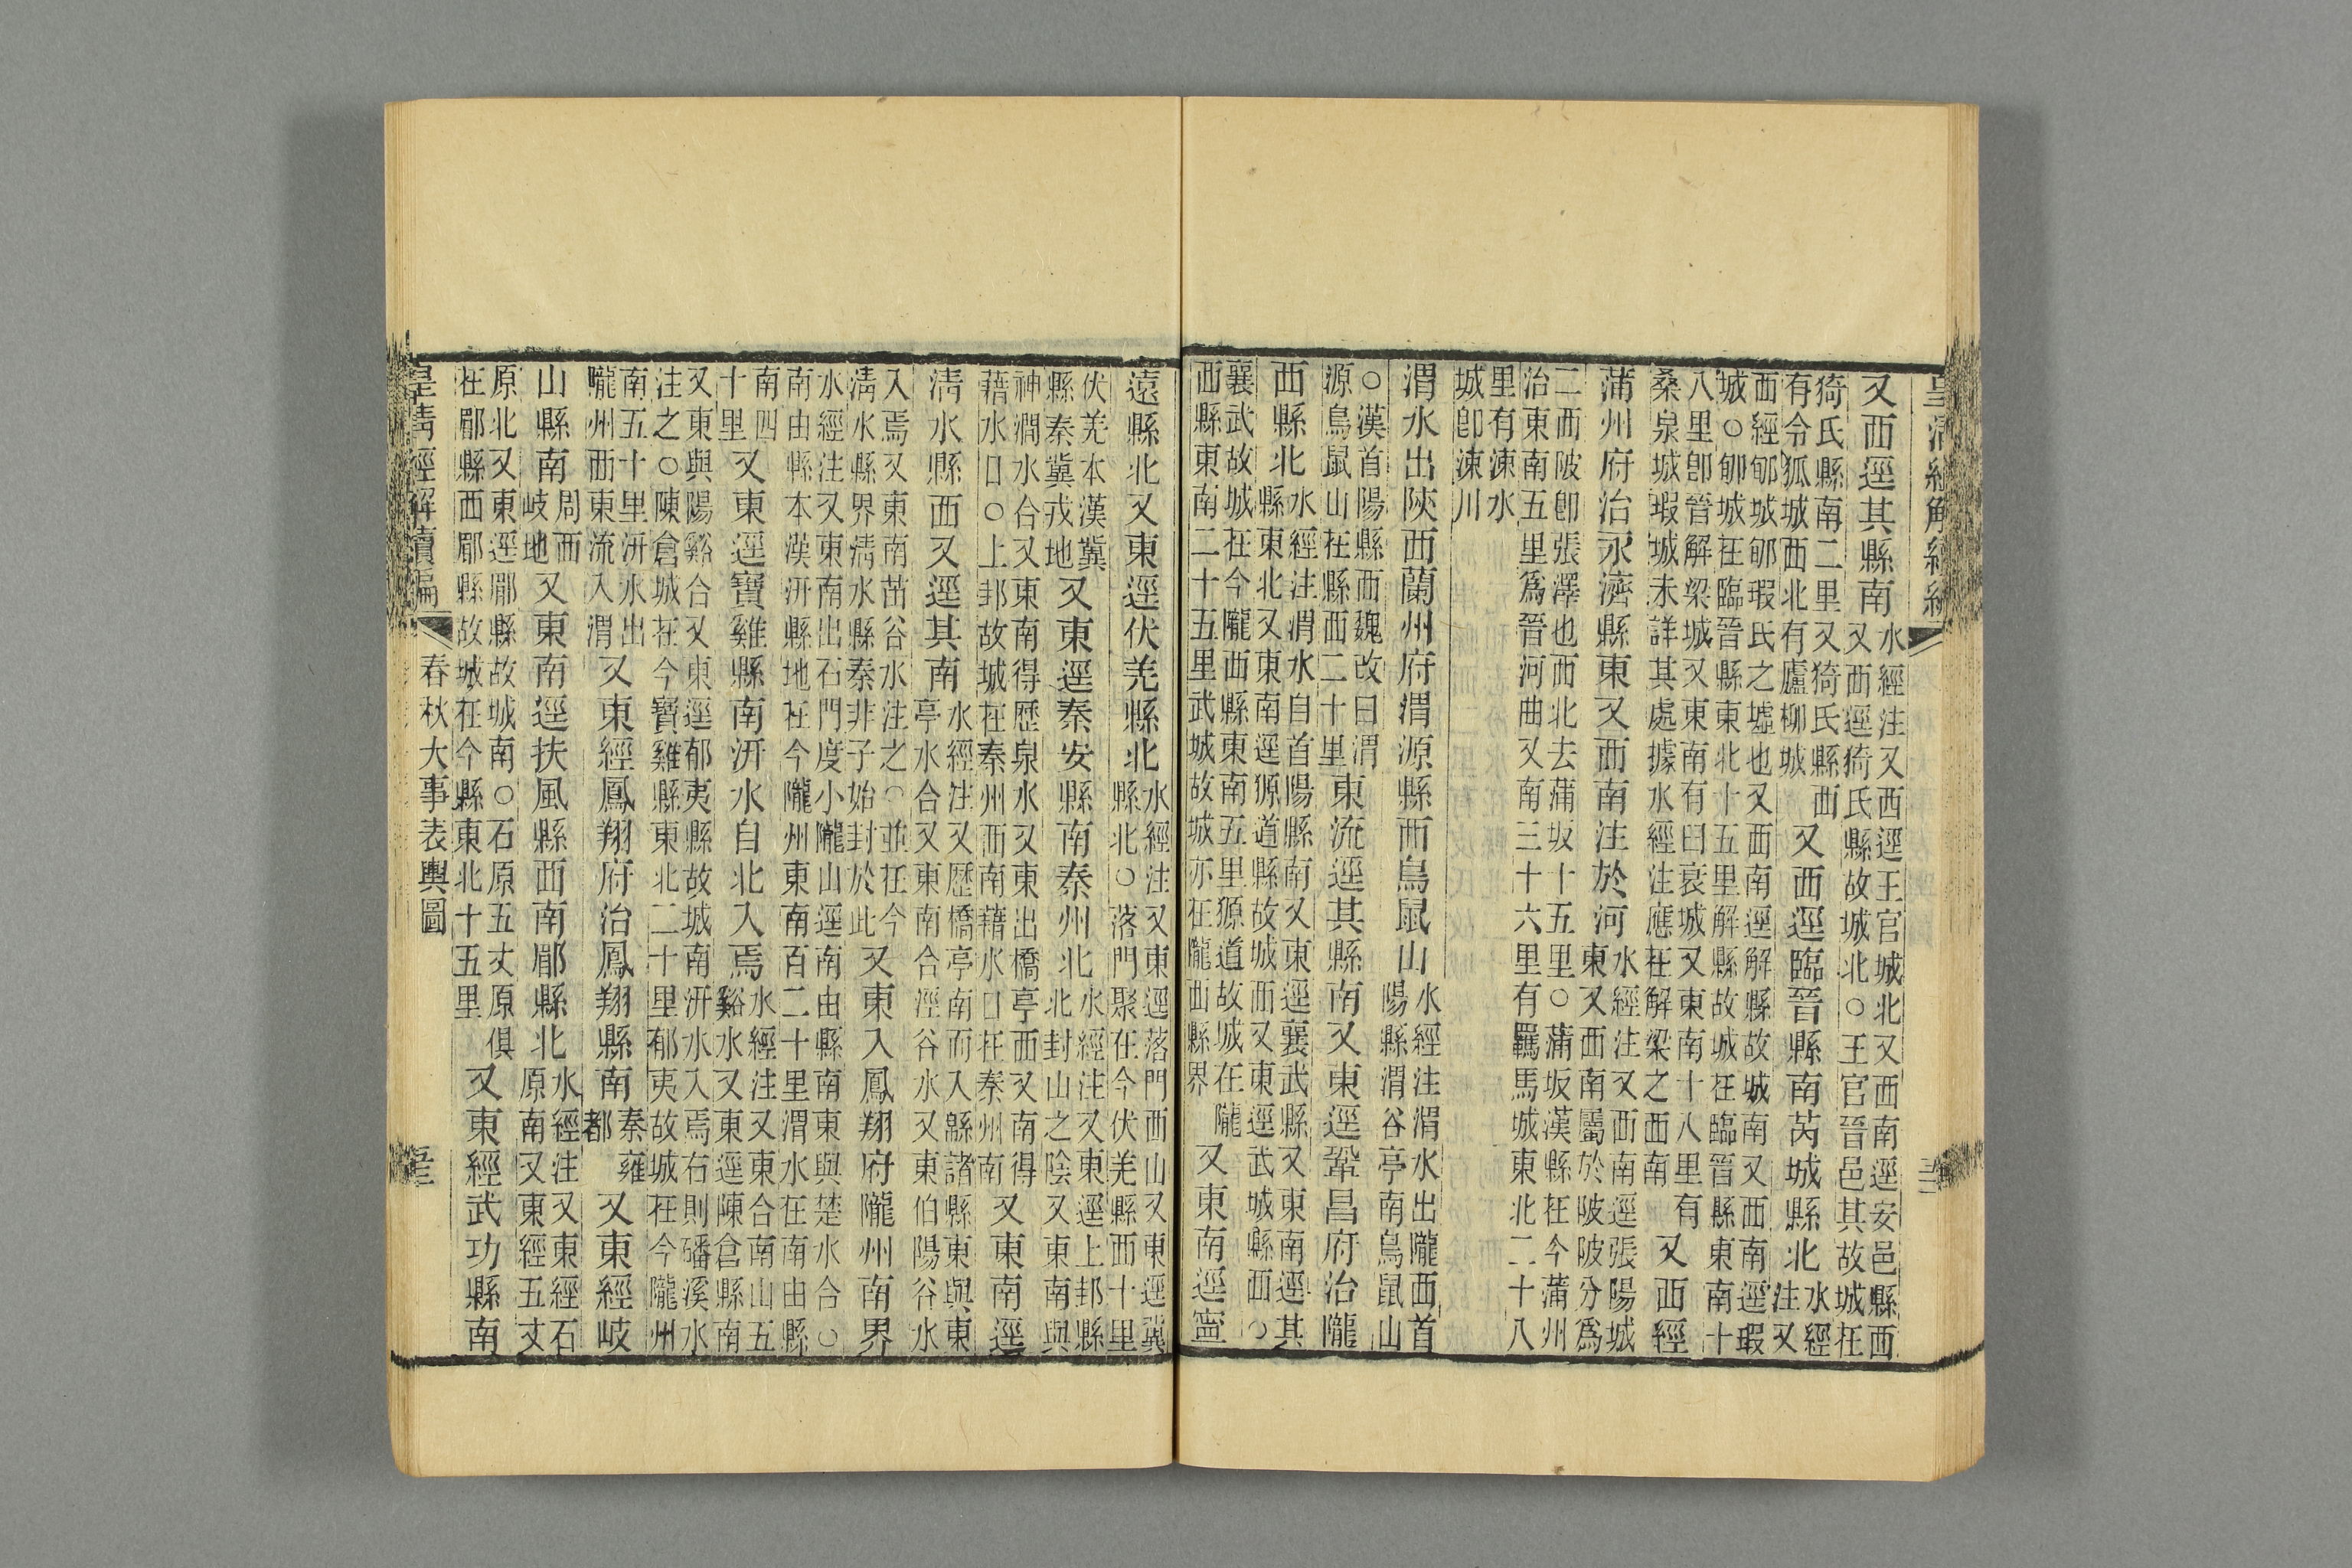 皇清經解續編
又西逕其縣南水經注又西逕王官城北又西南逕安邑縣西又西逕猗氏縣故城北○王官晉邑其故城在
猗氏縣南二里又猗氏縣西有令狐城西北有廬柳城又西逕臨晉縣南芮城縣北水經注又
西經郇城郇瑕氏之墟也又西南逕解縣故城南又西南逕瑕城○郇城在臨晉縣東北十五里解縣故城在臨晉縣東南十
八里卽管解梁城又東南有曰衰城又東南十八里有桑泉城瑕城未詳其處據水經注應在解梁之西南又西經
蒲州府治永濟縣東又西南注於河水經注又西南逕張陽城東又西南屬於陂陂分爲
二西陂卽張澤也西北去蒲坂十五里○蒲坂漢縣在今蒲州治東南五里爲晉河曲又南三十六里有羈馬城東北二十八
里有涑水城卽涑川
渭水出陝西蘭州府渭源縣西鳥鼠山水經注渭水出隴西首陽縣渭谷亭南鳥鼠山
○漢首陽縣西魏改曰渭源鳥鼠山在縣西二十里東流逕其縣南又東逕鞏昌府治隴
西縣北水經注渭水自首陽縣南又東逕襄武縣又東南逕其縣東北又東南逕豲道縣故城西又東逕武城縣西○
襄武故城在今隴西縣東南五里豲道故城在隴西縣東南二十五里武城故城亦在隴西縣界又東南逕寧
遠縣北又東逕伏羌縣北水經注又東逕落門西山又東逕冀縣北○落門聚在今伏羌縣西十里
伏羌本漢冀縣秦冀戎地又東逕秦安縣南秦州北水經注又東逕上邽縣北封山之陰又東南與
神澗水合又東南得歷泉水又東出橋亭西又南得藉水口○上邽故城在秦州西南藉水口在秦州南又東南逕
淸水縣西又逕其南水經注又歷橋亭南而入緜諸縣東與東亭水合又東南合涇谷水又東伯陽谷水
入焉又東南苗谷水注之○並在今淸水縣界淸水縣秦非子始封於此又東入鳳翔府隴州南界
水經注又東南出石門度小隴山逕南由縣南東與楚水合○南由縣本漢汧縣地在今隴州東南百二十里渭水在南由縣
南四十里又東逕寶雞縣南汧水自北入焉水經注又東合南山五谿水又東逕陳倉縣南
又東與陽谿合又東逕郁夷縣故城南汧水入焉右則磻溪水注之○陳倉城在今寶雞縣東北二十里郁夷故城在今隴州
南五十里汧水出隴州西東流入渭又東經鳳翔府治鳳翔縣南秦雍都又東經岐
山縣南周西岐地又東南逕扶風縣西南郿縣北水經注又東經石原南又東經五丈
原北又東逕郿縣故城南○石原五丈原俱在郿縣西郿縣故城在今縣東北十五里又東經武功縣南
皇淸經解續編 春秋大事表輿圖